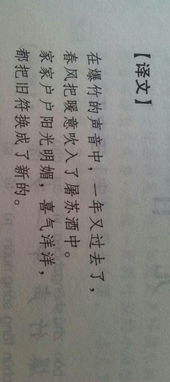 【译文】
在爆竹的声音中，一年又过去了，
春风把暖意吹入了屠苏酒中。
家家户户阳光明媚，喜气洋洋，
都把旧符换成了新的。